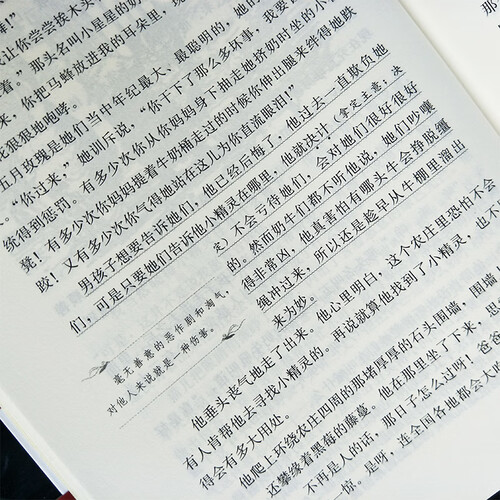 让你尝尝挨木头
着。”那头名叫小星星的奶
来，你把马蜂放进我的耳朵里，
轮狠狠地咆哮。
五月玫瑰是她们当中年纪最大、最聪明的，她
“你过来，”她训斥说，“你干下了那么多坏事，我要
统得到惩罚。有多少次你从你妈妈身下抽走她挤奶时坐的小
凳！有多少次你妈妈提着牛奶桶走过的时候你伸出腿来绊得她跌
跤！又有多少次你气得她站在这儿为你直流眼泪！”
男孩子想要告诉她们，他已经后悔了，他过去一直欺负她
们，可是只要她们告诉他小精灵在哪里，他就决计（拿定主意；决
定）不会亏待她们，会对她们很好很好
的。然而奶牛们都不听他说，她们吵嚷
得非常凶，他真害怕有哪头牛会挣脱缰
绳冲过来，所以还是趁早从牛棚里溜出
来为妙。
毫无善意的恶作剧和淘气，
对他人来说就是一种伤害。
他垂头丧气地走了出来。他心里明白，这个农庄里恐怕不会
有人肯帮他去寻找小精灵的。再说就算他找到了小精灵，也不
得会有多大用处。
他爬上环绕农庄四周的那堵厚厚的石头围墙，围墙
还攀缘着黑莓的藤蔓。他在那里坐了下来，
不再是人的话，那日子怎么过呀！爸爸
惊。是呀，连全国各地都会大吃
那